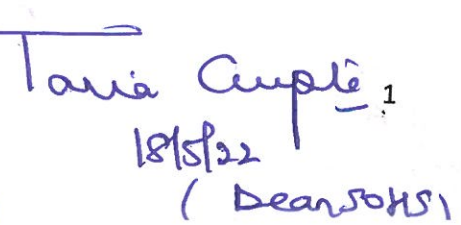 Tania Gupte 1
18/5/22
( Dean SOHS)